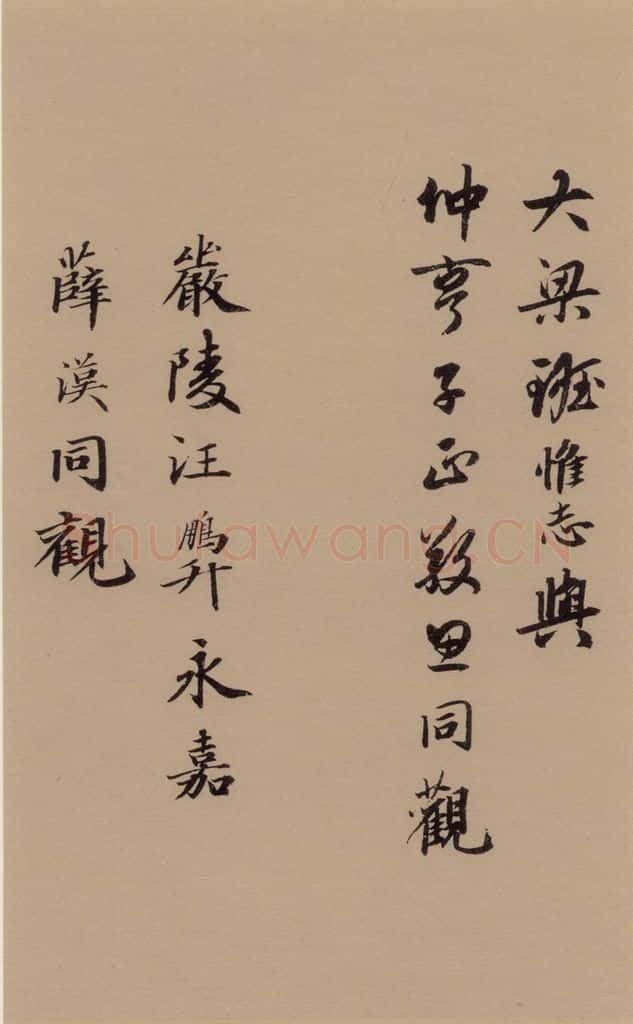 大梁班惟志與
仲亨子正敬思同觀
嚴陵汪鵬升永嘉
薛漢同觀